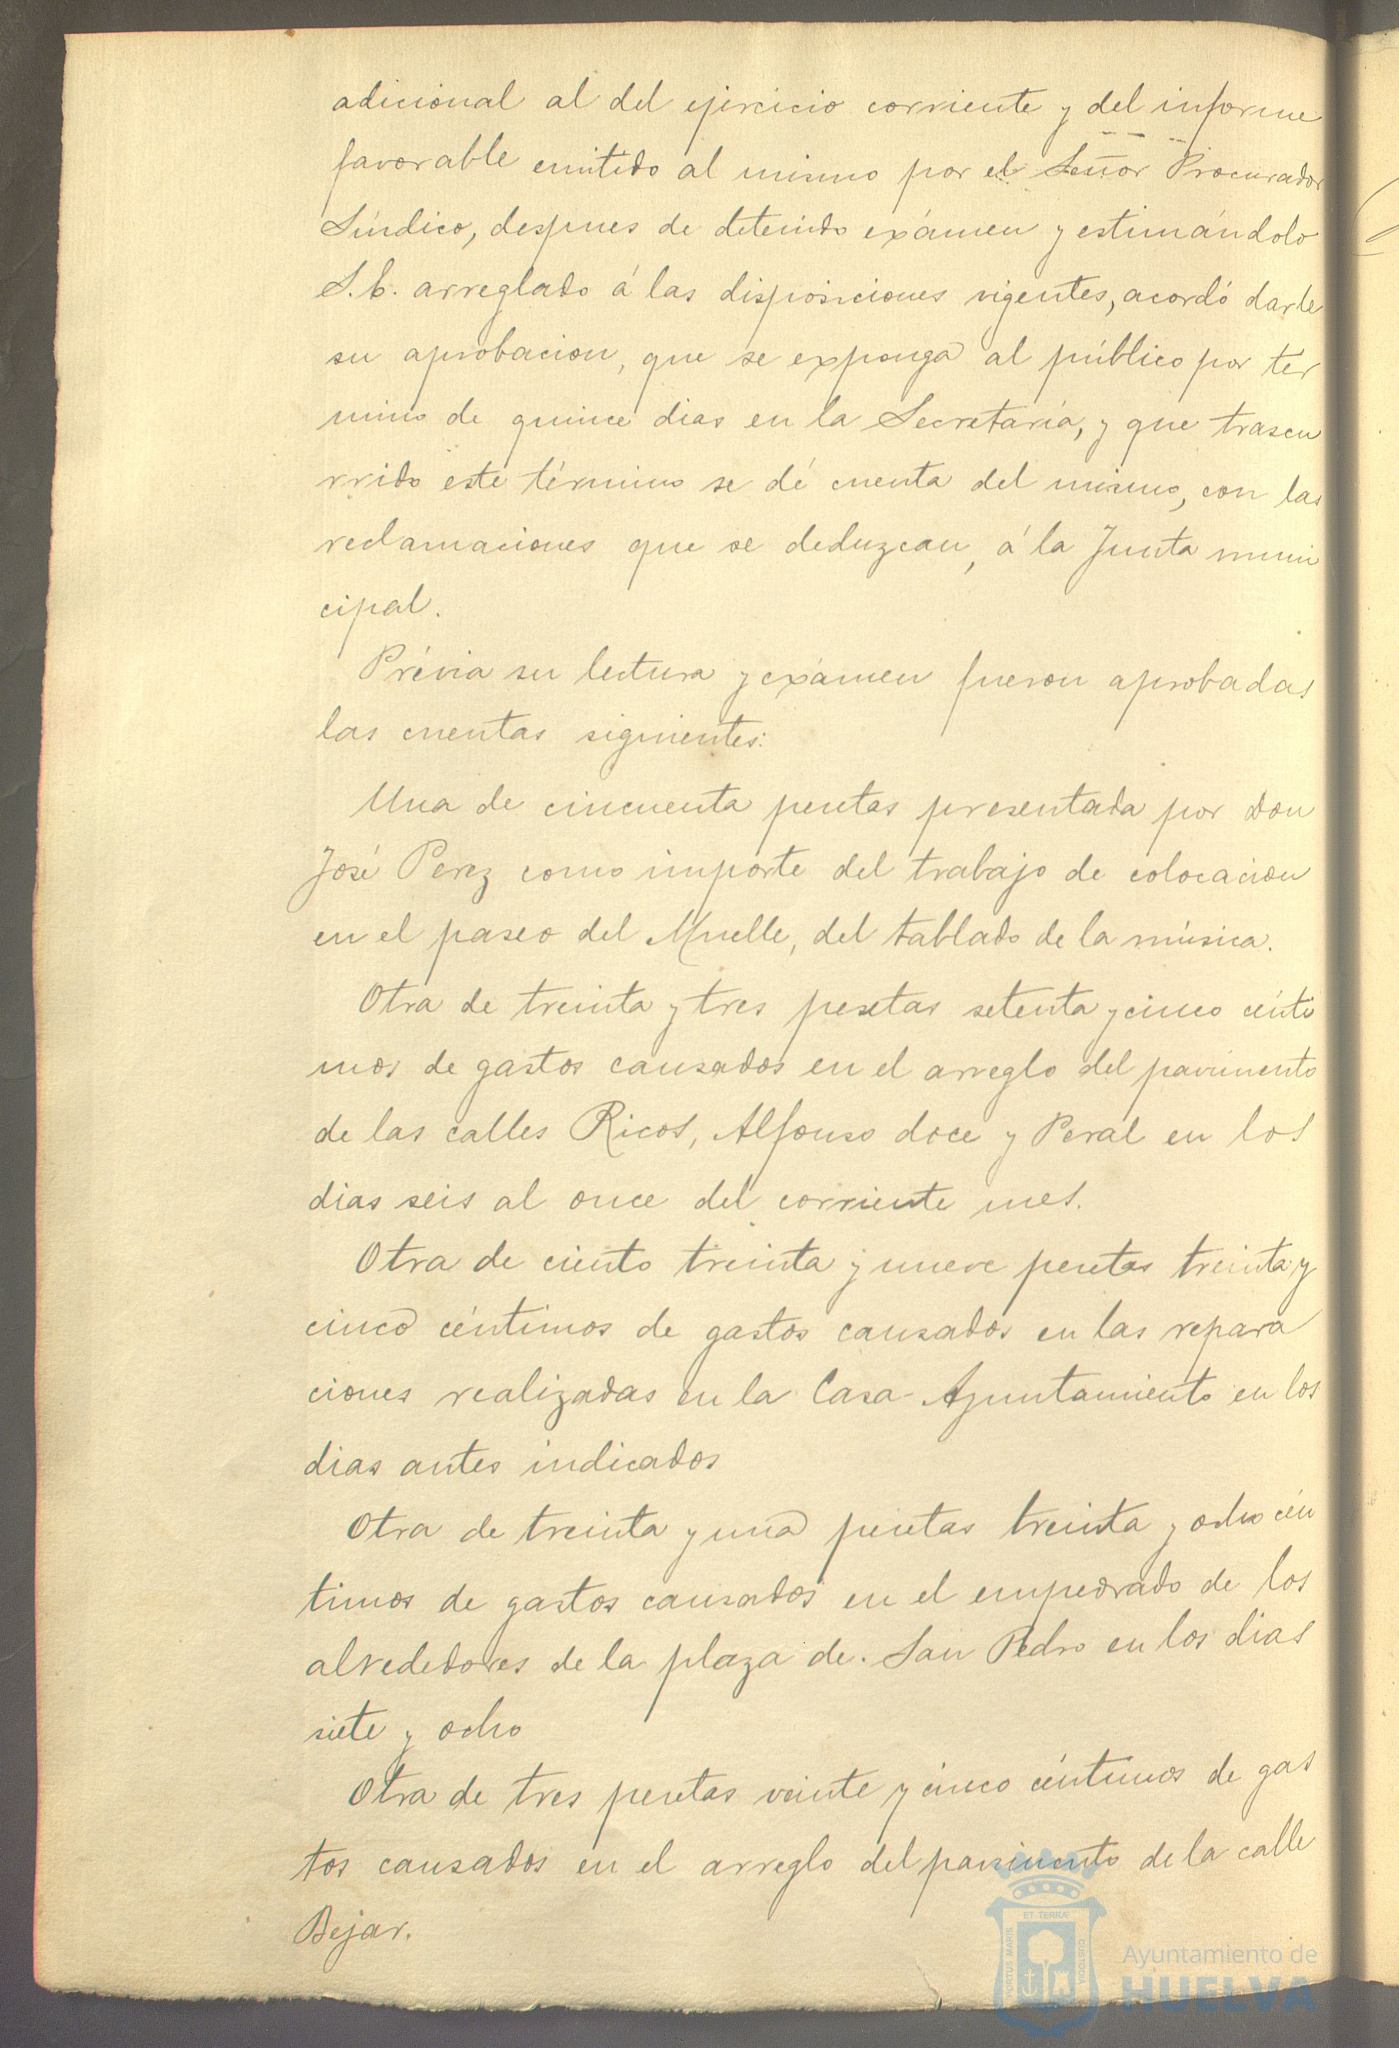 adicional al del ejercicio corriente y del informe
favorable emitido al mismo por el Señor Procurador
Síndico, despues de detenido exámen y estimándolo
S.E. arreglado á las disposiciones vigentes, acordó darle
su aprobacion, que se exponga al público por tér
mino de quince dias en la Secretaría, y que trascu
rrido este término se dé cuenta del mismo, con las
reclamaciones que se deduzcan, á la Junta muni
cipal.
Prévia su lectura y exámen fueron aprobadas
las cuentas siguientes:
Una de cincuenta pesetas presentada por Don
José Perez como importe del trabajo de colocacion
en el paseo del Muelle, del tablado de la música.
Otra de treinta y tres pesetas setenta y cinco cénti
mos de gastos causados en el arreglo del pavimento
de las calles Ricos, Alfonso doce y Peral en los
dias seis al once del corriente mes.
Otra de ciento treinta y nueve pesetas treinta y
cinco céntimos de gastos causados en las repara
ciones realizadas en la Casa-Ayuntamiento en los
dias antes indicados
Otra de treinta y una pesetas treinta y ocho cén
timos de gastos causados en el empedrado de los
alrededores de la plaza de San Pedro en los dias
siete y ocho
Otra de tres pesetas veinte y cinco céntimos de gas
tos causados en el arreglo del pavimento de la calle
Bejar.
PORTUS MARIS ET TERRÆ CUSTODIA
Ayuntamiento de
HUELVA